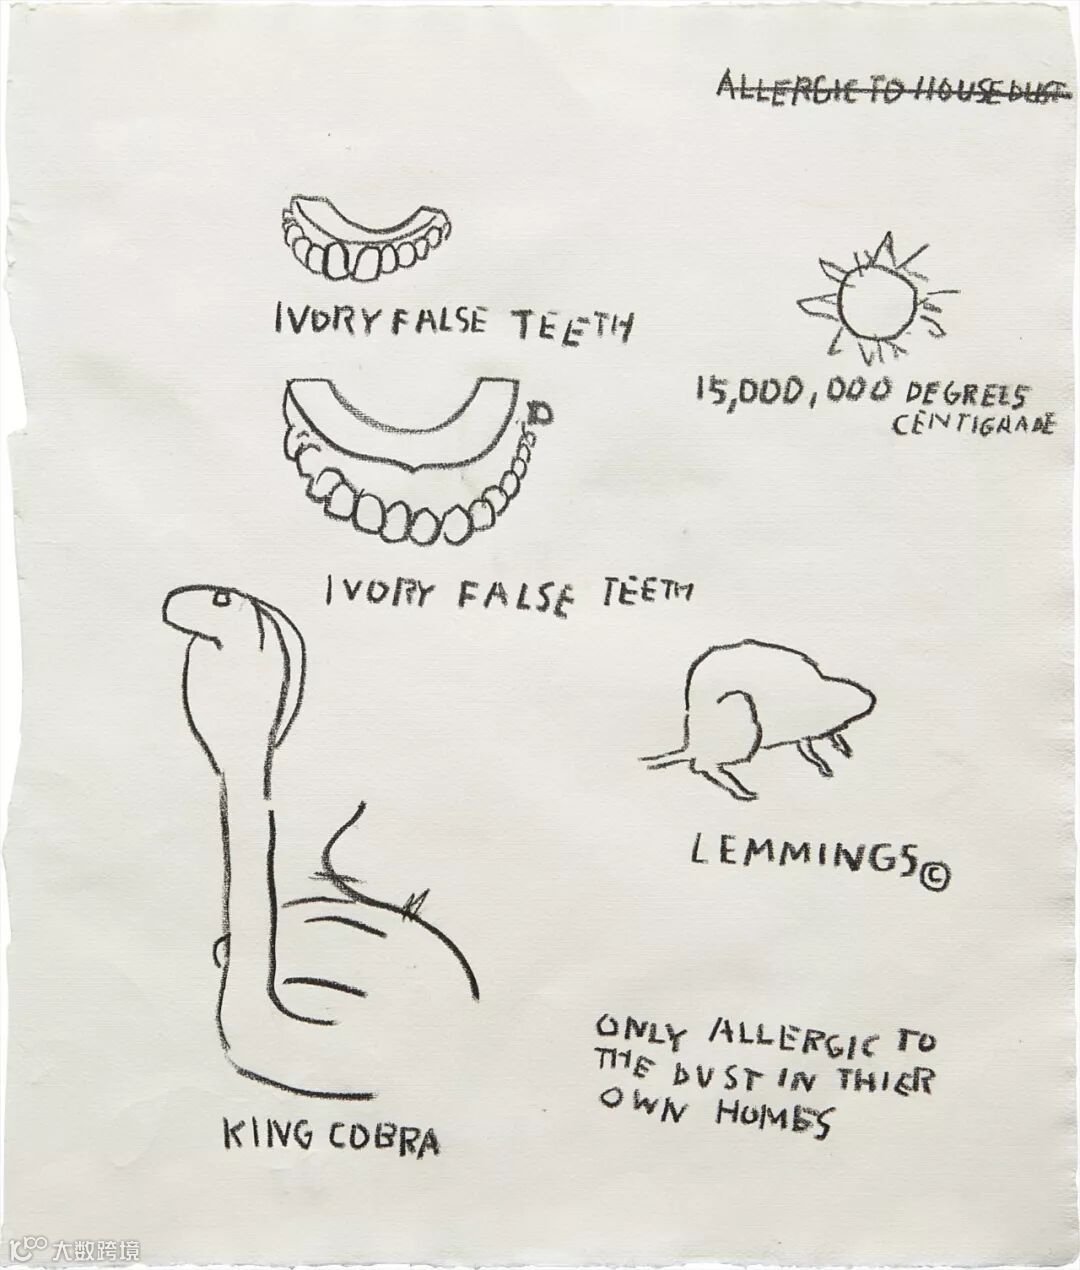 ALLERGIC TO HOUSE DUST
IVORY FALSE TEETH
15,000,000 DEGREES
CENTIGRADE
IVORY FALSE TEETH
LEMMINGS©
ONLY ALLERGIC TO
THE DUST IN THIER
OWN HOMES
KING COBRA
大数跨境